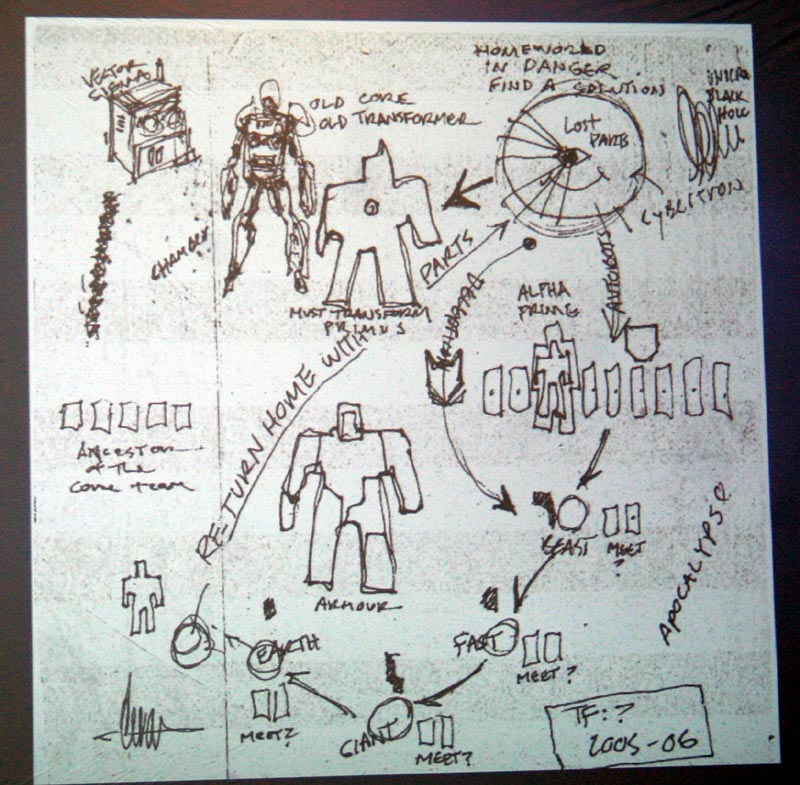 VECTOR
SIGMA
OLD CORE
OLD TRANSFORMER
HOMEWORLD
IN DANGER
FIND A SOLUTION
LOST
PARTS
MICRO
BLACK
HOLE
CYBERTRON
CHAMBER
MUST TRANSFORM
PRIMUS
PARTS
AUTOBOTS
ALPHA
PRIME
RETURN HOME WITH
Ancestors
of the
Core team
ARMOUR
BEAST
MEET
?
APOCALYPSE
EARTH
MEET?
FAST
MEET?
GIANT
MEET?
TF:?
2005-06